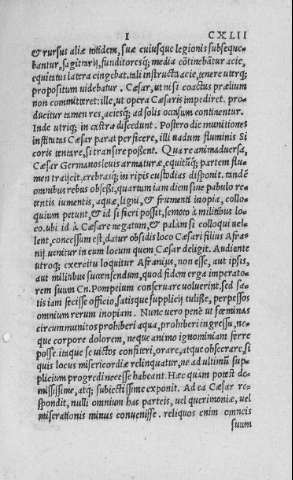 I CXLII
& rursus aliæ totidem, suæ cuiusque legionis subseque-
bantur, sagittarij, funditoresq; media cõtinebãtur acie,
equitatus latera cingebat. tali instructa acie, tenere utrq;
propositum uidebatur. Cæsar, ut nisi coactus prælium
non committeret: ille, ut opera Cæsaris impediret. pro-
ducitur tamen res, aciesq; ad solis occasum continentur.
Inde utriq; in castra discedunt. Postero die munitiones
institutas Cæsar parat perficere, illi uadum fluminis Si
coris tentare, si transire possent. Qua re animaduersa,
Cæsar Germanos leuis armaturæ, equitũq; partem flu-
men traijcit, crebrasq; in ripis custodias disponit. tandẽ
omnibus rebus obsessi, quartum iam diem sine pabulo re
tentis iumentis, aquæ, ligni, & frumenti inopia, collo-
quium petunt, & id si fieri possit, semoto à militibus lo-
co. ubi id à Cæsare negatum, & palam si colloqui uel-
lent, concessum est, datur obsidis loco Cæsari filius Afra-
nij. uenitur in eum locum quem Cæsar delegit. Audiente
utroq; exercitu loquitur Afranius, non esse, aut ipsis,
aut militibus succensendum, quod fidem erga imperato-
rem suum Cn. Pompeium conseruare uoluerint. sed sa-
tis iam fecisse officio, satisque supplicij tulisse, perpessos
omnium rerum inopiam. Nunc uero penè ut fœminas
circummunitos prohiberi aqua, prohiberi ingressu, ne-
que corpore dolorem, neque animo ignominiam ferre
posse. itaque se uictos confiteri, orare, atque obsecrare, si
quis locus misericordiæ relinquatur, ne ad ultimũ sup-
plicium progredi necesse habeant. Hæc quàm potest de-
mississime, atq; subiectissime exponit. Ad ea Cæsar re-
spondit, nulli omnium has parteis, uel querimoniæ, uel
miserationis minus conuenisse. reliquos enim omneis
suum